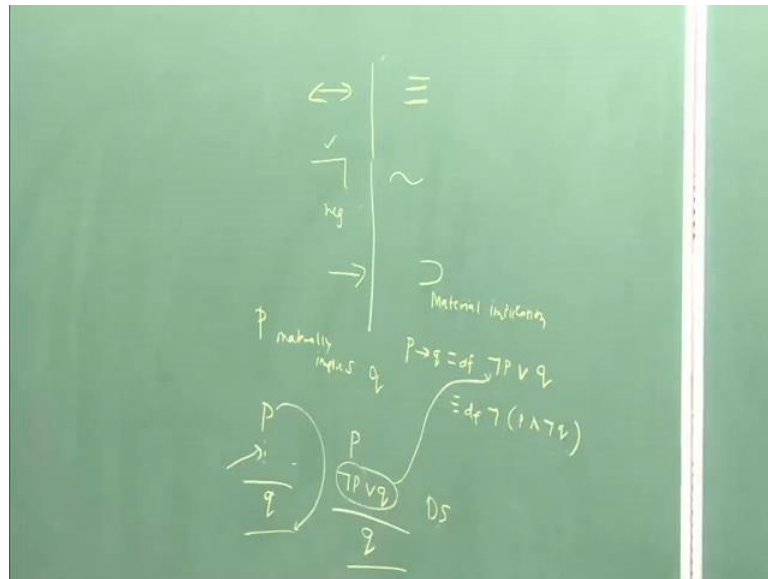 ↔ ≡
¬ ∼
neg
→ ⊃
Material implication
p materially
implies q
p → q ≡df ¬p ∨ q
≡df ¬(p ∧ ¬q)
p
p
¬p ∨ q DS
q
q